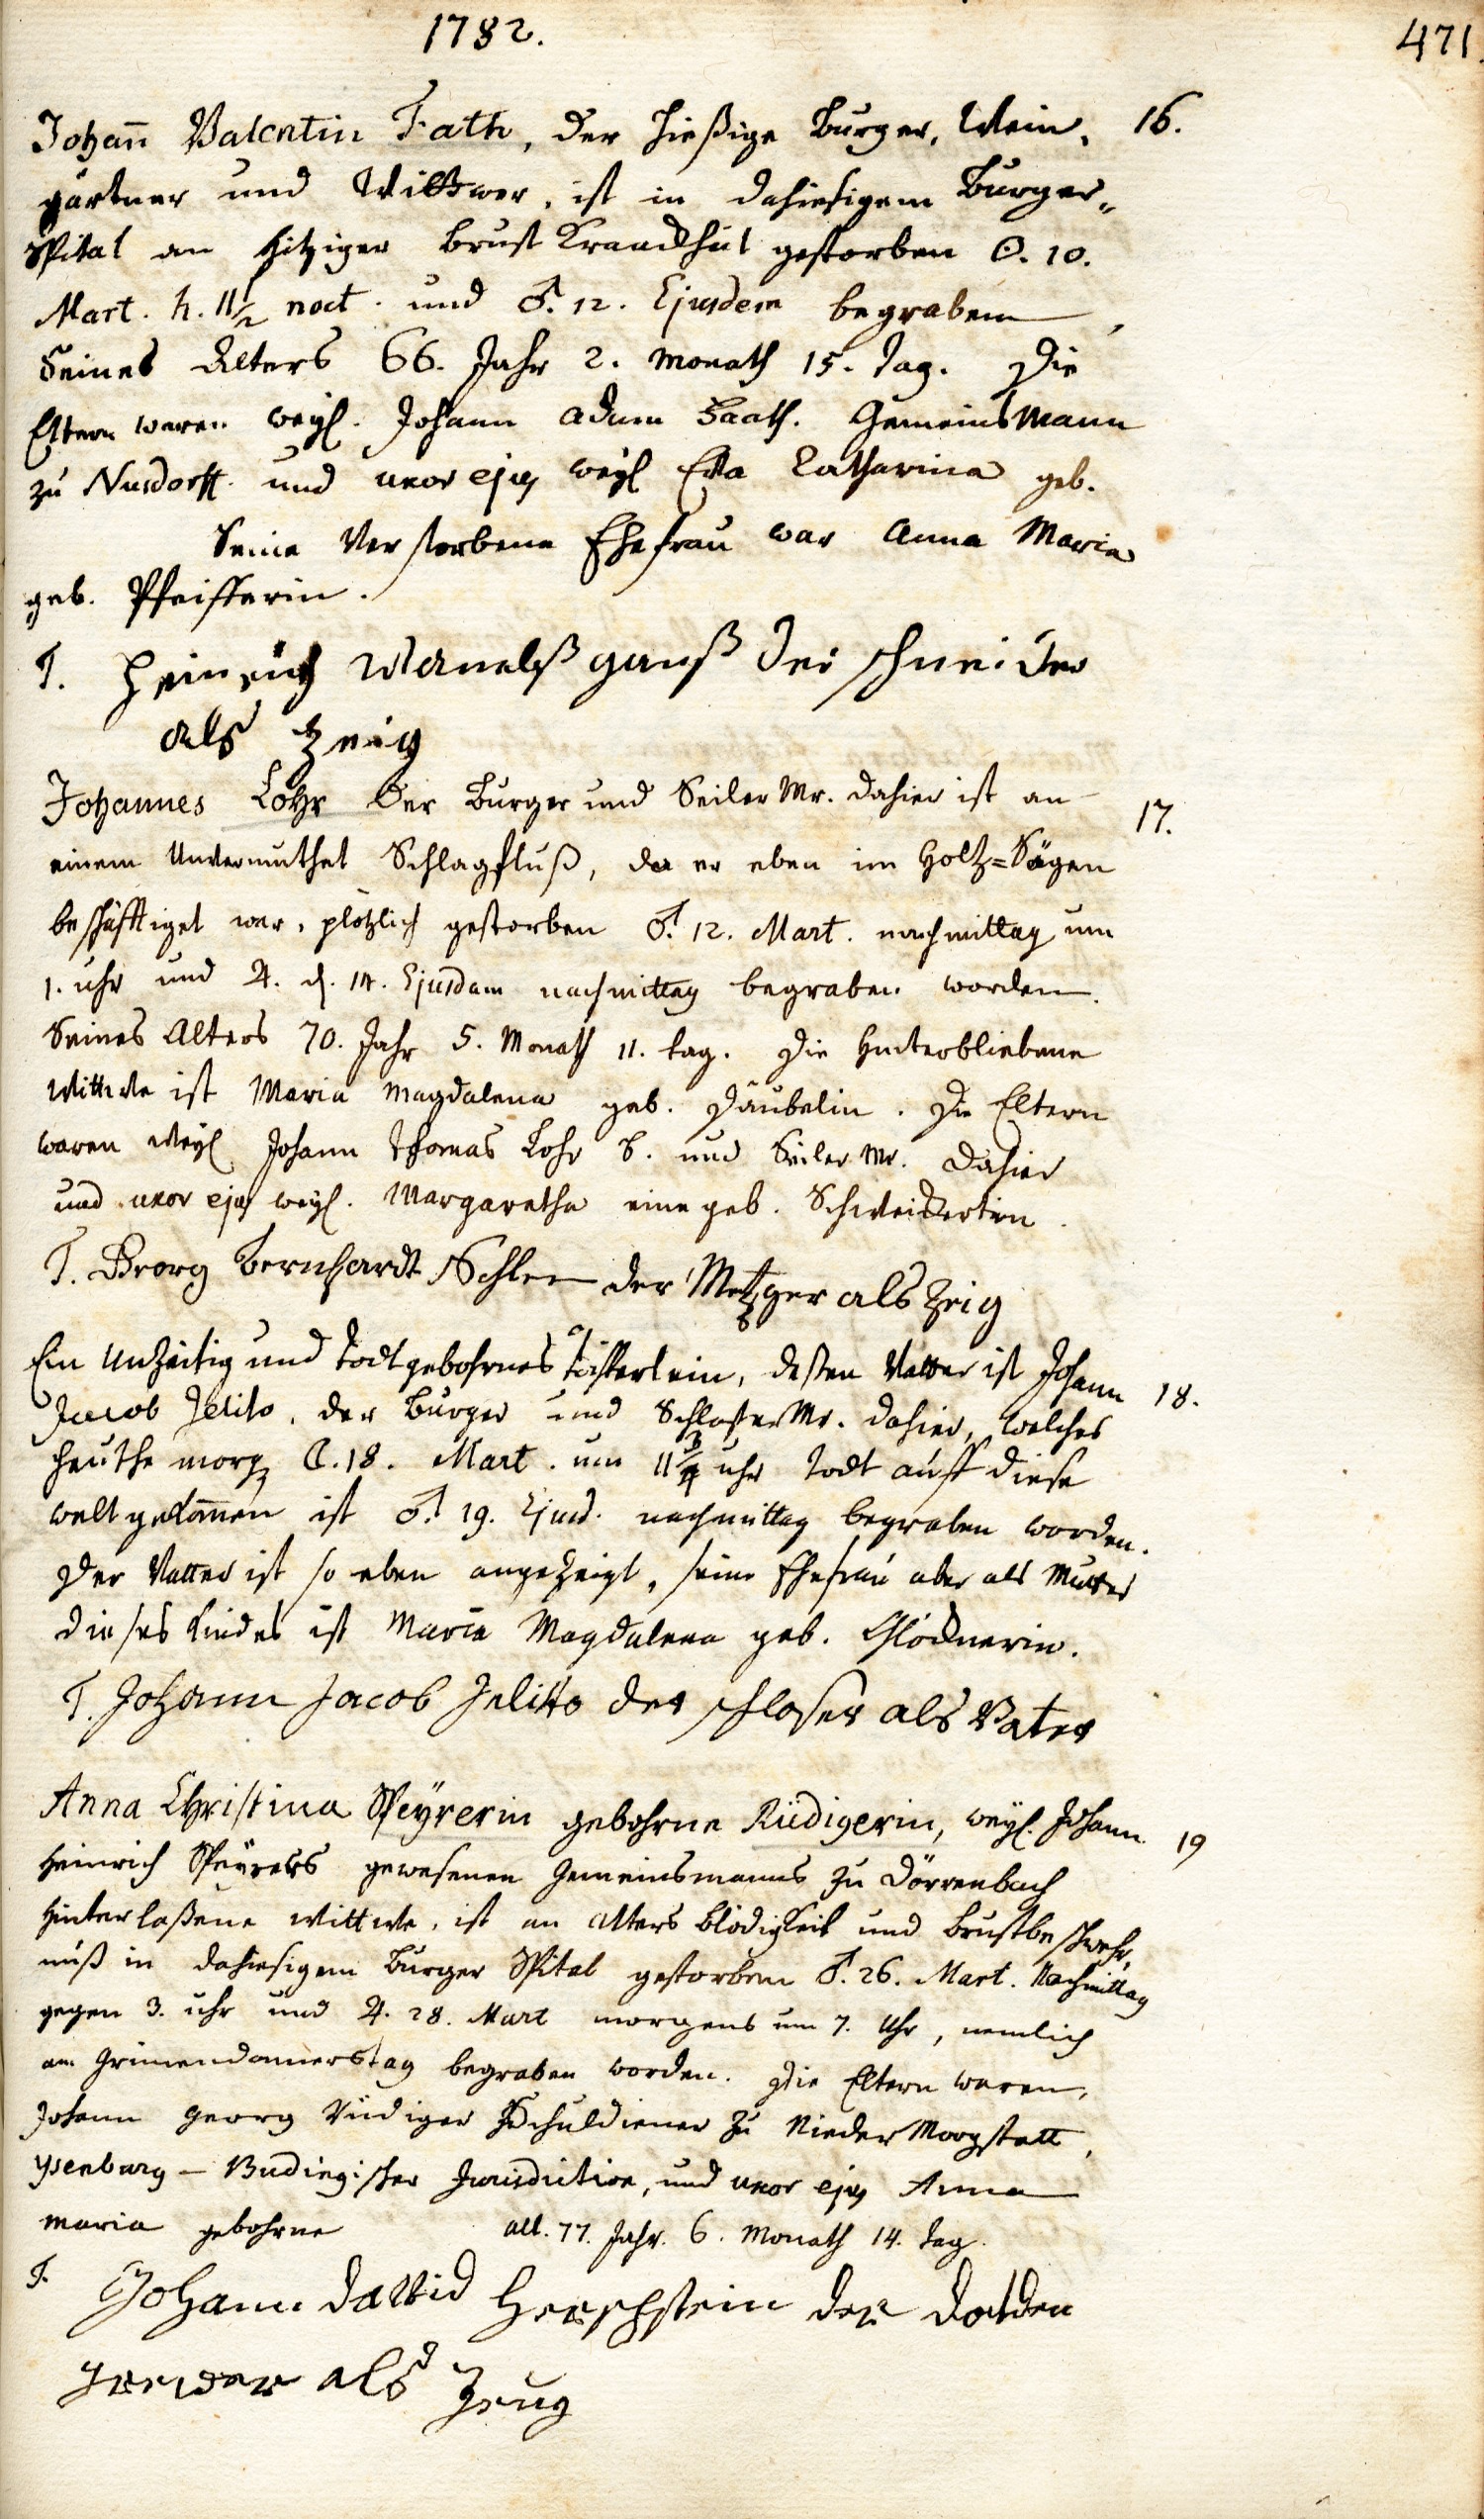 1782.
471.
Johan̄ Valentin Fath, der hießige Burger, Wein- 16.
gärtner und Wittwer, ist in dahiesigem Burger„
Spital an hitziger Brust Kranckheit gestorben ☉. 10.
Mart. h. 11½ noct. und ♂. 12. Ejusdem begraben,
Seines Alters 66. Jahr 2. Monath 15. Tag. Die
Eltern waren weyl. Johann Adam Faath. Gemeinsmann
zu Nusdorff. und uxor ejus weyl Eva Catharina geb.
Seine Verstorbene Ehefrau war Anna Maria
geb. Pfeifferin.
T. Heinrich Wanelß ganß der schneider
als Zeig
Johannes Lohr der Burger und Seiler Mr. dahier ist an 17.
einem Unvermuthet Schlagfluß, da er eben im Holtz=Sägen
beschäfftiget war, plötzlich gestorben ♂. 12. Mart. nachmittag um
1. uhr und ♃. d. 14. Ejusdem nachmittag begraben worden.
Seines Alters 70. Jahr 5. Monath 11. tag. Die Hinterbliebene
Wittwe ist Maria Magdalena geb. Däubelin. Die Eltern
waren weyl Johann Thomas Lohr B. und Seiler Mr. dahier
und uxor ejus weyl. Margaretha eine geb. Schweickertin.
T. Georg Bernhardt der Metzger als Zeig
Ein Unzeitig und todtgebohrnes Töchterlein, dessen Vatter ist Johann 18.
Jacob Jelito, der Burger und Schlosser Mr. dahier, welches
heuthe morg ☾. 18. Mart. um 11¾ uhr todt auff diese
welt gekom̄en ist ♂. 19. Ejusd. nachmittag begraben worden.
Der Vatter ist so eben angezeigt, seine Ehefrau aber als Mutter
dieses Kindes ist Maria Magdalena geb. Glöcknerin.
T. Johann Jacob Jelitto der schloser als Vater
Anna Christina Speyrerin gebohrne Rüdigerin, weyl. Johann 19
Heinrich Speyrers gewesenen Gemeinsmanns zu Dörrenbach
Hinterlaßene Wittwe, ist an Alters Blödigkeit und Brustbeschwehr„
nüß in dahiesigem Burger Spital gestorben ♂. 26. Mart. Nachmittag
gegen 3. uhr und ♃. 28. Mart morgens um 7. Uhr, nemlich
am Grünendonnerstag begraben worden. Die Eltern waren,
Johann Georg Rüdiger Schuldiener zu Nieder Mogstatt,
Ysenburg - Budingischer Jurisdiction, und uxor ejus Anna
Maria gebohrne alt. 77. Jahr. 6. Monath 14. tag.
T. Johann David Herschstein der dotden
greber als Zeug